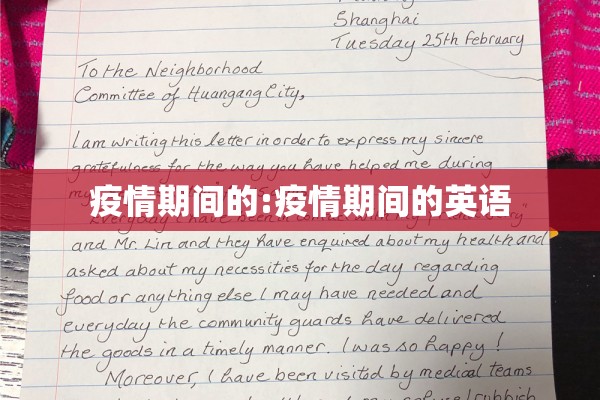 Shanghai
Tuesday 25th february
To the Neighborhood
Committee of Huangang City,
I am writing this letter in order to express my sincere
gratefulness for the way you have helped me during
疫情期间的:疫情期间的英语
and Mr. Lin and they have enquired about my health and
asked about my necessities for the day regarding
food or anything else I may have needed and
everyday the community guards have delivered
the goods in a timely manner. I was so happy!
Moreover, I have been visited by medical teams